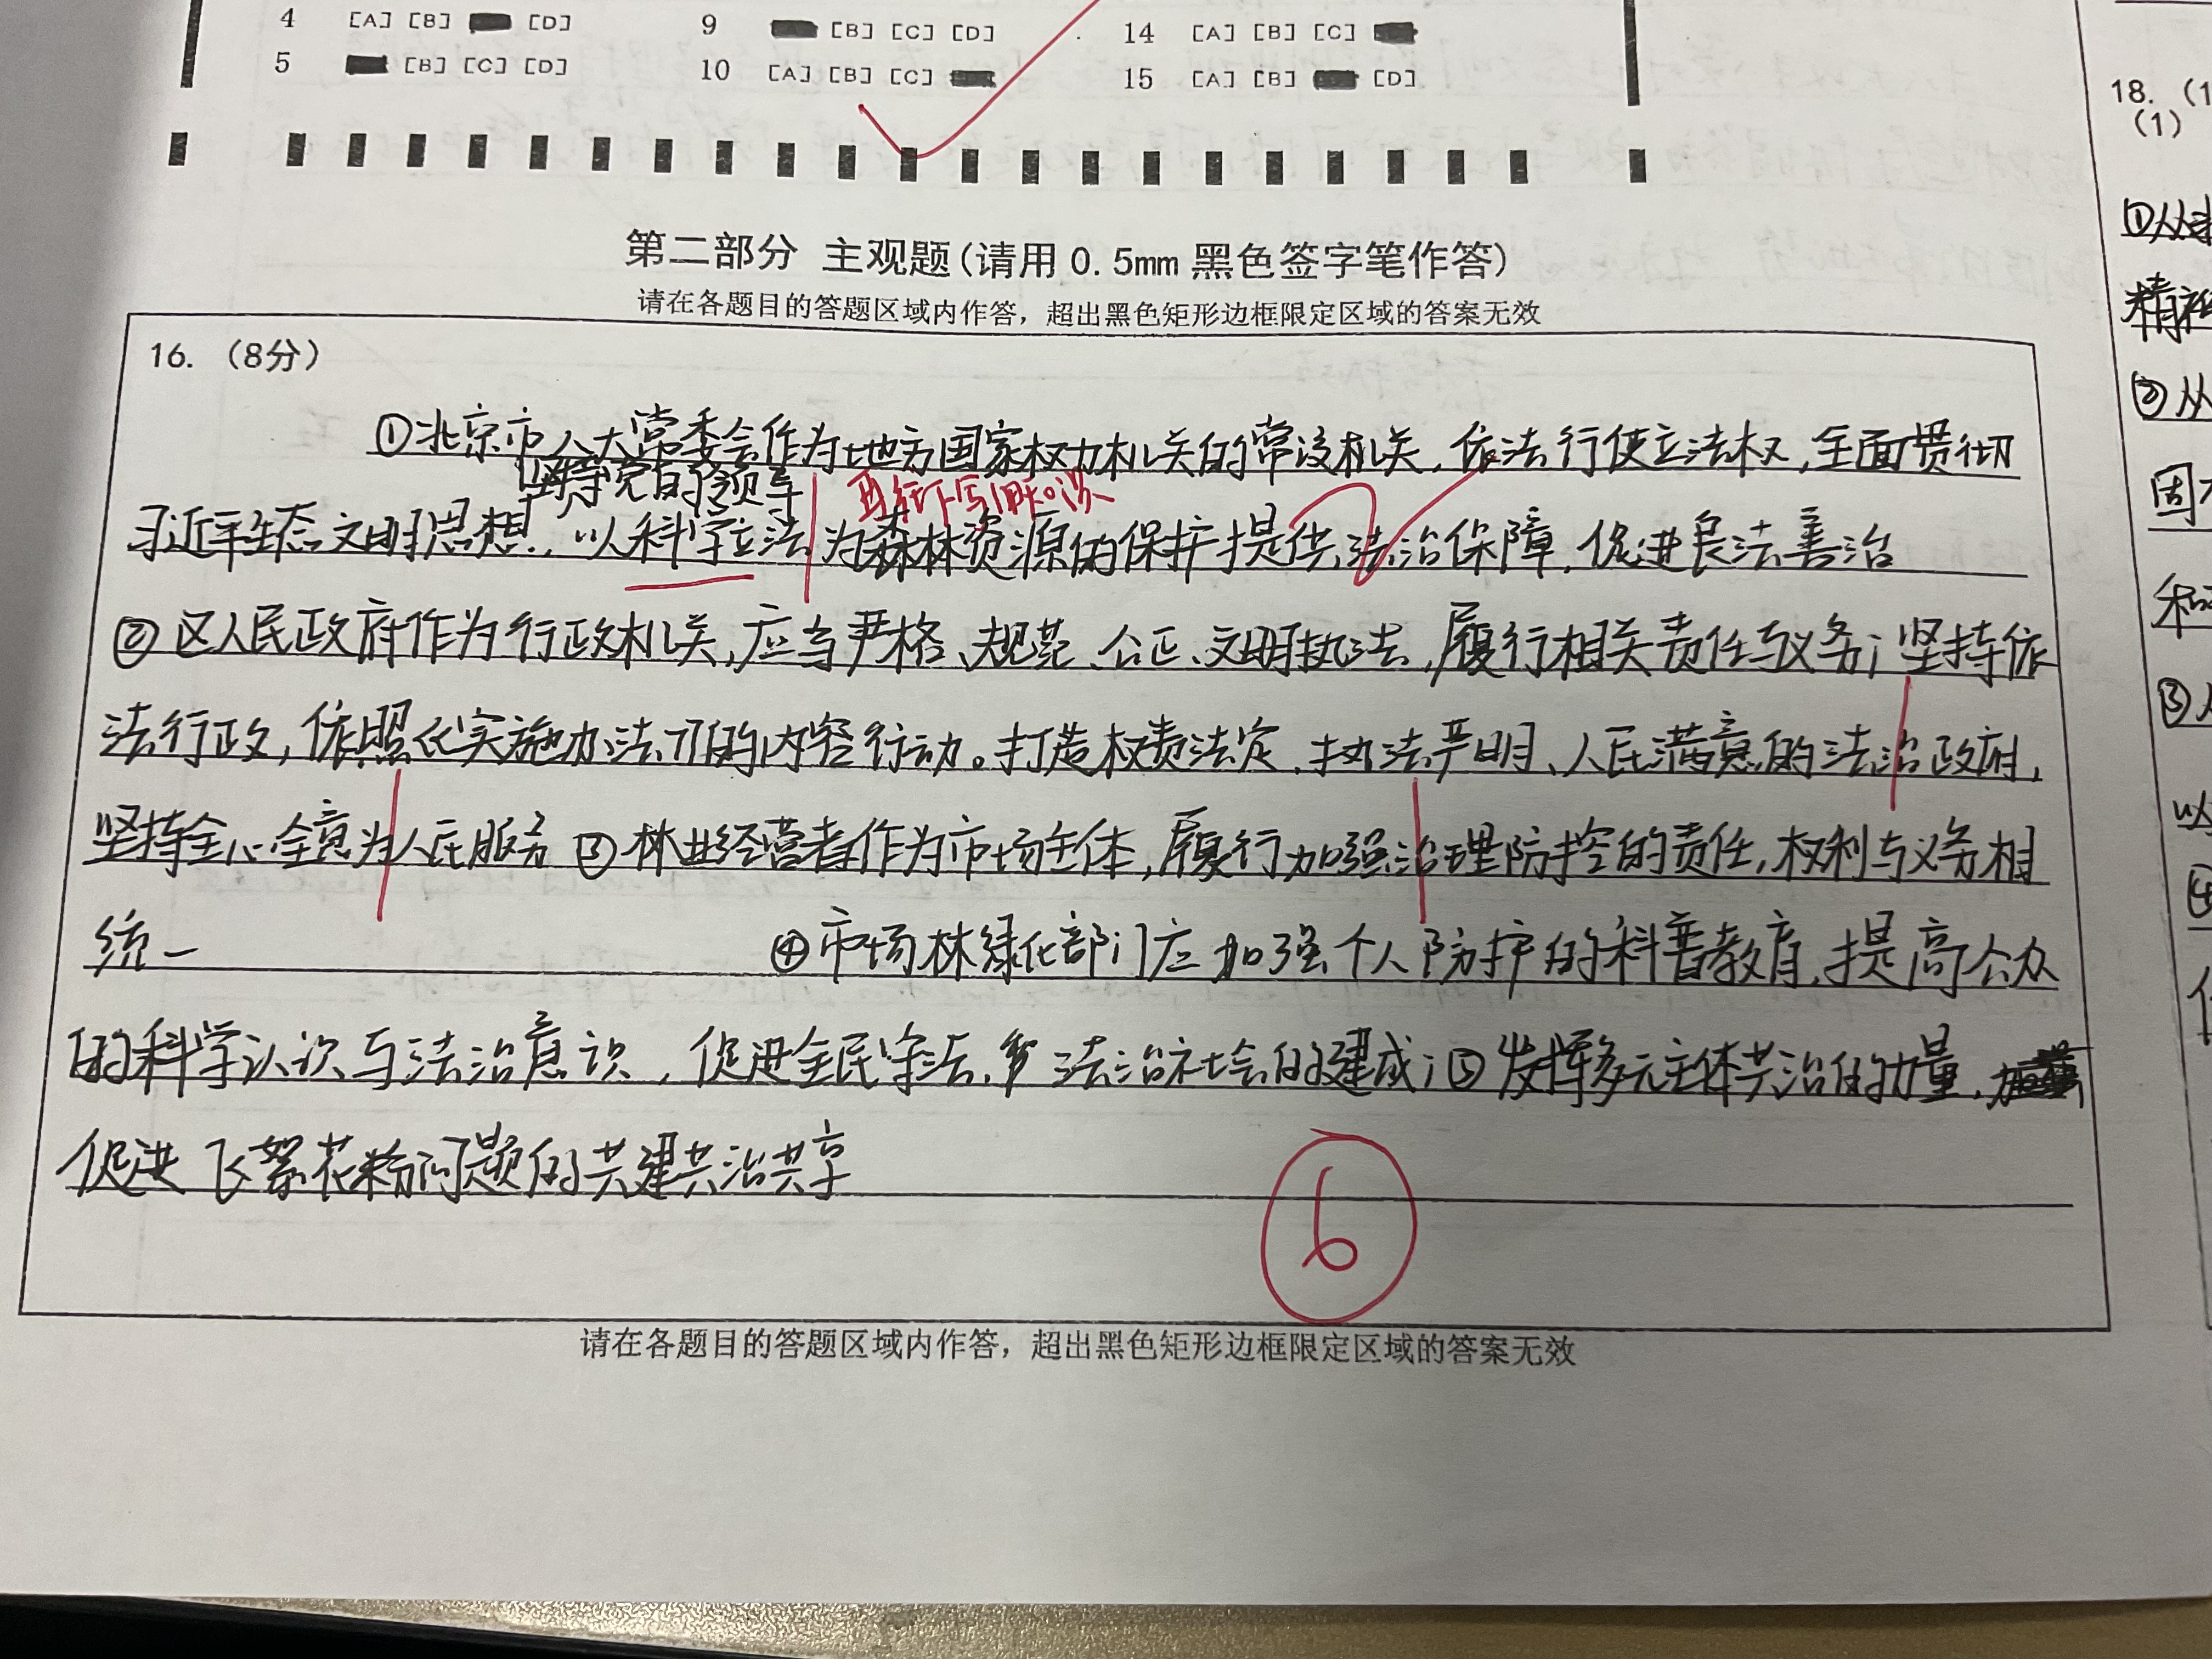 4 [A] [B] [D] 9 [B] [C] [D] 14 [A] [B] [C]
5 [B] [C] [D] 10 [A] [B] [C] 15 [A] [B] [D]
第二部分 主观题(请用 0.5mm 黑色签字笔作答)
请在各题目的答题区域内作答，超出黑色矩形边框限定区域的答案无效
16. （8分）
①北京市人大常委会作为地方国家权力机关的常设机关，依法行使立法权，全面贯彻
坚持党的领导
习近平生态文明思想，以科学立法为森林资源的保护提供法治保障，促进良法善治
②区人民政府作为行政机关，应当严格、规范、公正、文明执法，履行相关责任与义务；坚持依
法行政，依照《实施办法》的内容行动。打造权责法定、执法严明、人民满意的法治政府，
坚持全心全意为人民服务 ③林业经营者作为市场主体，履行加强治理防控的责任，权利与义务相
统一 ④市场林绿化部门应加强个人防护的科普教育，提高公众
的科学认识与法治意识，促进全民守法，法治社会的建成；⑤发挥多元主体共治的力量，
促进飞絮花粉问题的共建共治共享
6
请在各题目的答题区域内作答，超出黑色矩形边框限定区域的答案无效
18. （1
（1）
①从
精神
②从
固
和
③
以
④